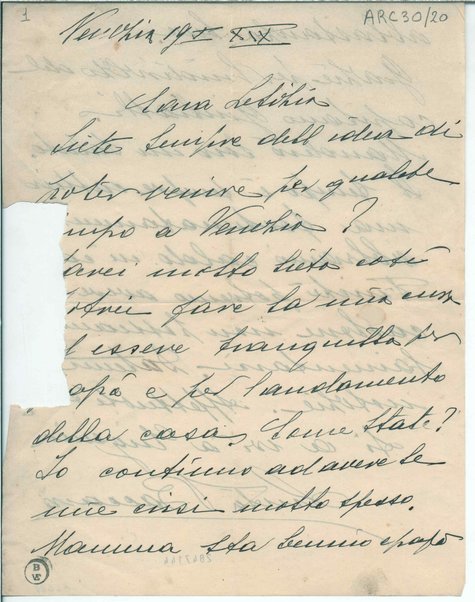 1
ARC30/20
Venezia 19 X XIX
Cara Letizia
Siete sempre dell'idea di
poter venire per qualche
empo a Venezia?
arei molto lieta così
otrei fare la mia cura
d essere tranquilla per
apà e per l'andamento
della casa. Come State?
Io continuo ad avere le
mie crisi molto spesso.
Mamma sta benino e papà